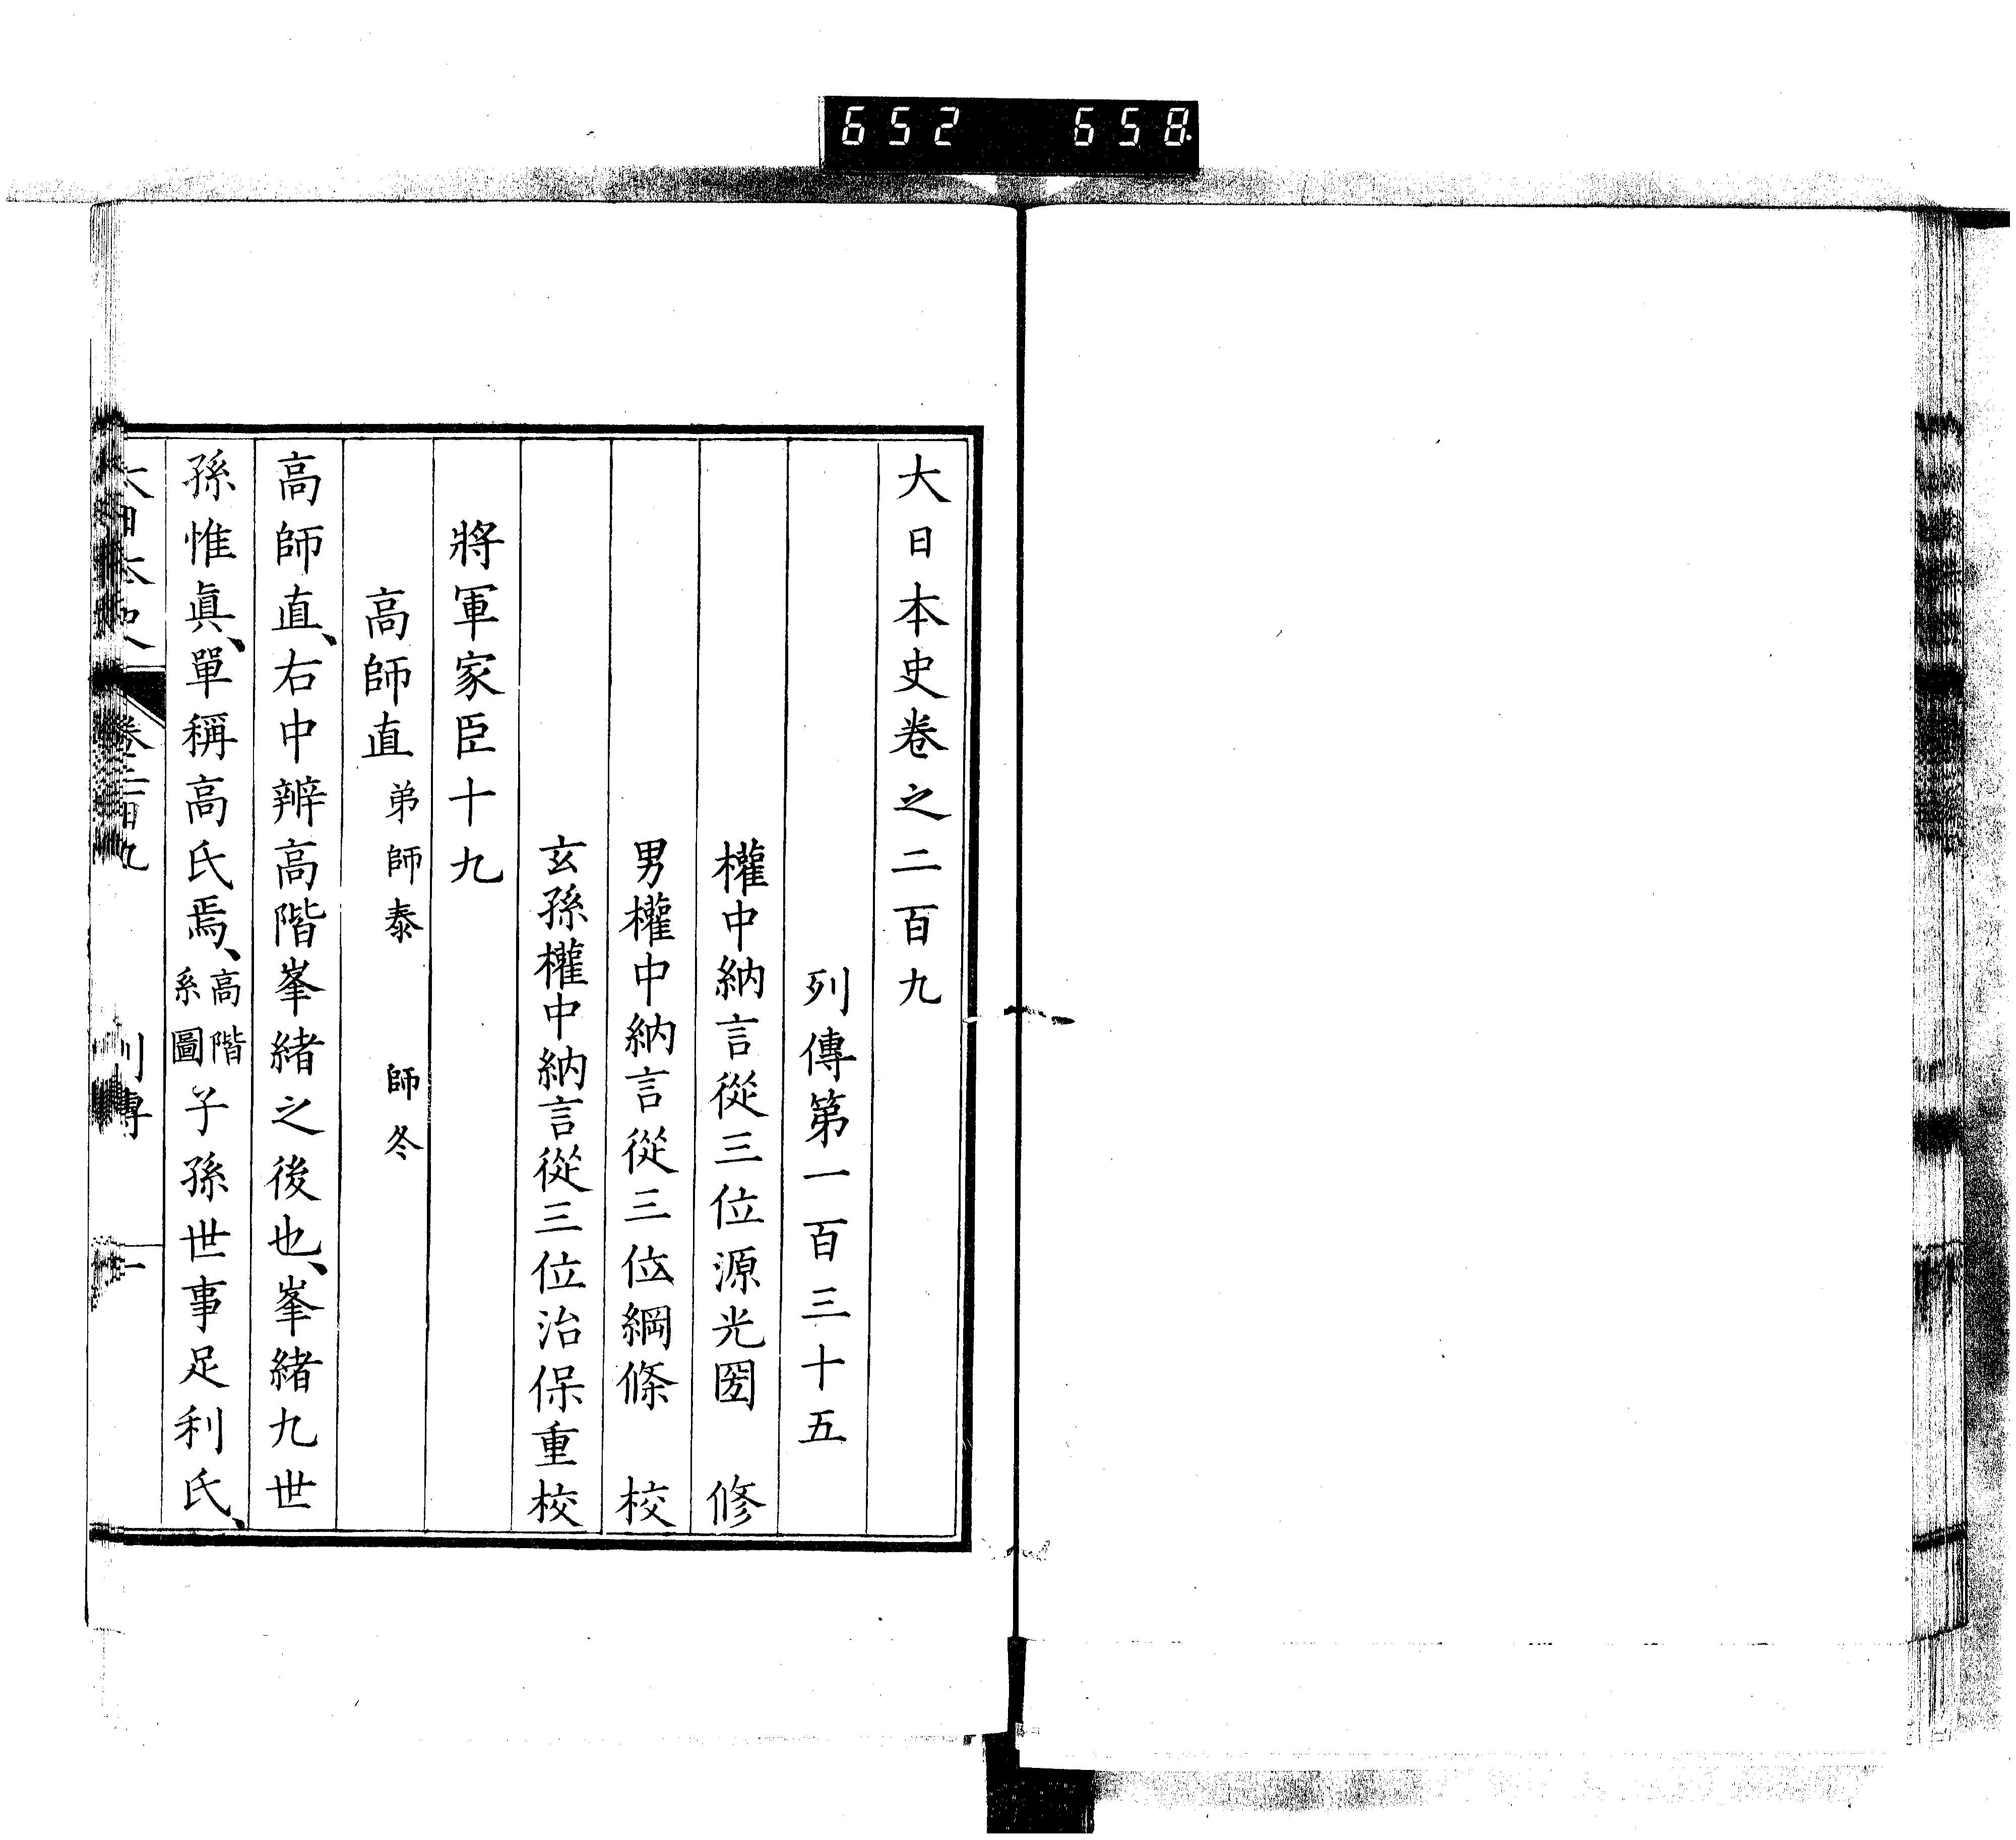 652 658
大日本史卷之二百九
列傳第一百三十五
權中納言從三位源光圀 修
男權中納言從三位綱條 校
玄孫權中納言從三位治保重校
將軍家臣十九
高師直 弟師泰 師冬
高師直、右中辨高階峯緒之後也、峯緒九世
孫惟眞、單稱高氏焉、高階系圖子孫世事足利氏、
大日本史 卷二百九 列傳 一